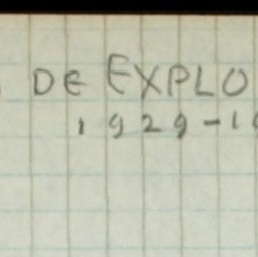 DE EXPLO
1929-1